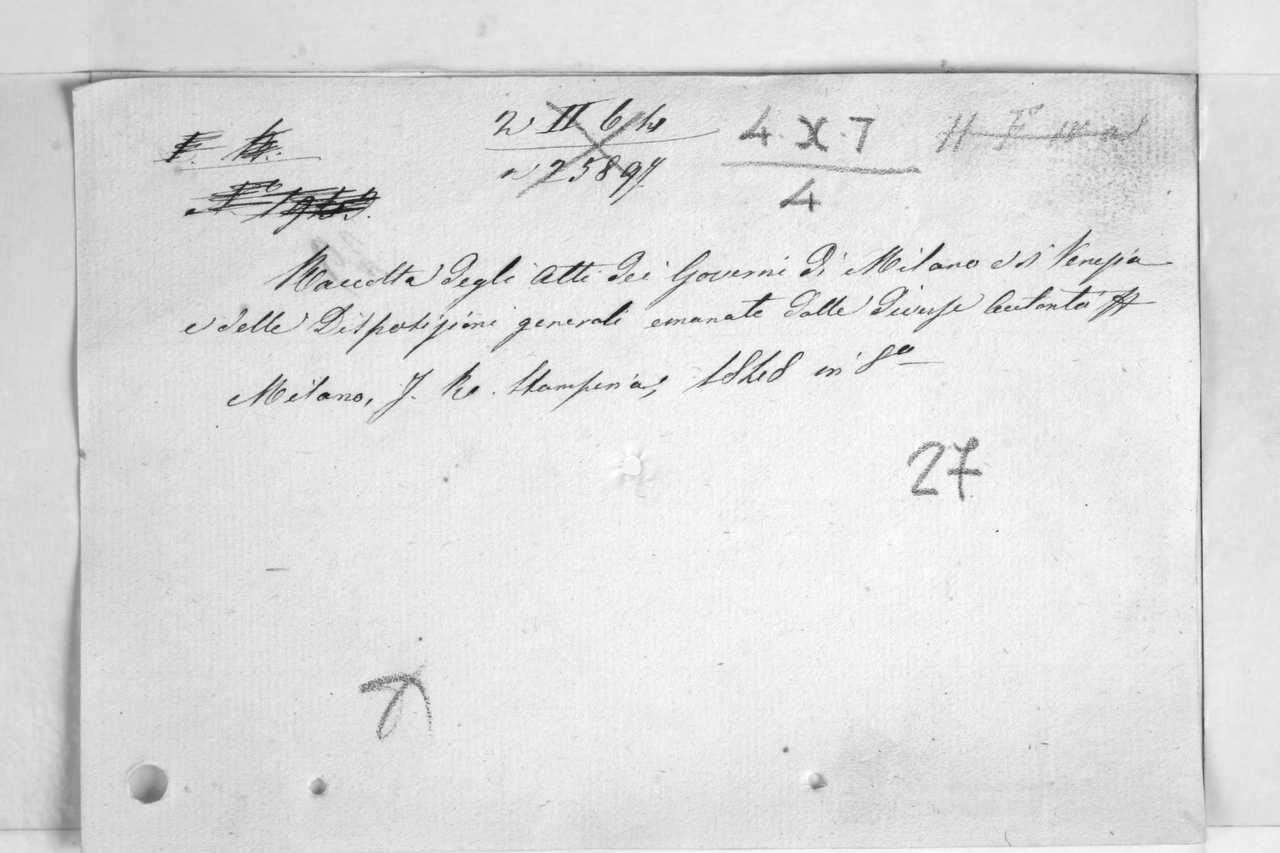 2 II 6 4
4. X. 7
25897
4
Raccolta degli Atti dei Governi di Milano e di Venezia
e delle Disposizioni generali emanate dalle diverse Autorità
Milano, J. R. Stamperia, 1848 in 8º
27